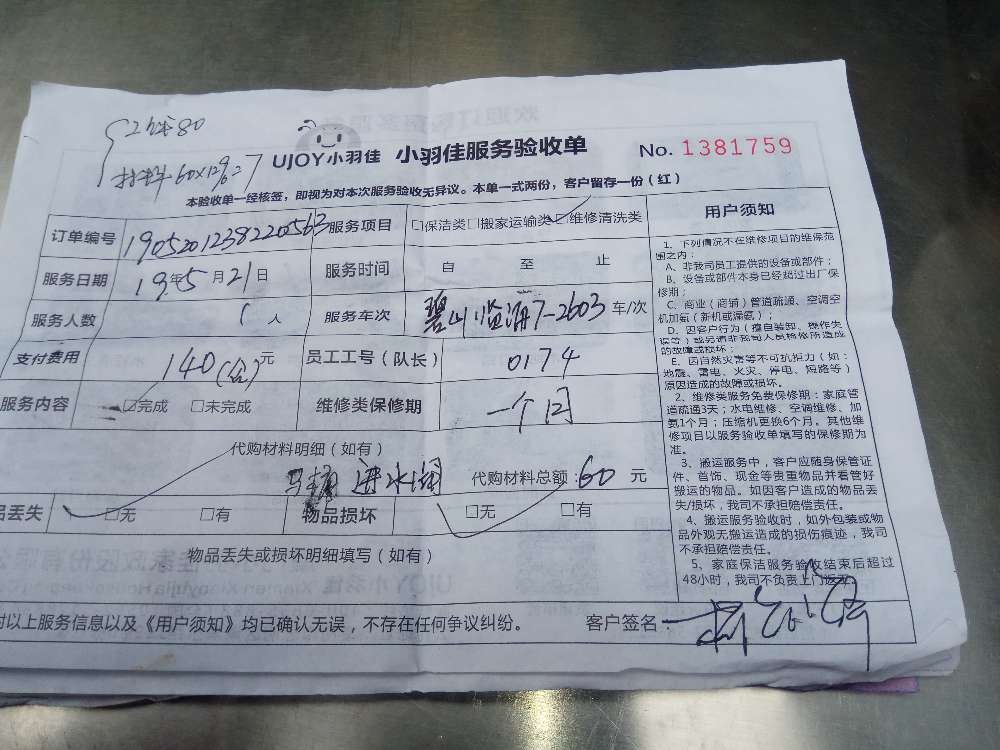 工钱80
材料60×12%=7
UJOY小羽佳 小羽佳服务验收单 No. 1381759
本验收单一经核签，即视为对本次服务验收无异议。本单一式两份，客户留存一份（红）
订单编号 1905201238220563 服务项目 □保洁类□搬家运输类□维修清洗类
服务日期 19年5月21日 服务时间 自 至 止
服务人数 1人 服务车次 碧山临海7-2603 车/次
支付费用 140(公)元 员工工号（队长） 0174
服务内容 ☑完成 □未完成 维修类保修期 一个月
代购材料明细（如有）
马桶进水阀 代购材料总额：60 元
品丢失 □无 □有 物品损坏 □无 □有
物品丢失或损坏明细填写（如有）
对以上服务信息以及《用户须知》均已确认无误，不存在任何争议纠纷。 客户签名：
用户须知
1、下列情况不在维修项目的维保范
围之内：
A、非我司员工提供的设备或部件；
B、设备或部件本身已经超过出厂保
修期；
C、商业（商铺）管道疏通、空调空
机加氨（新机或漏氨）；
D、因客户行为（擅自装卸、操作失
误等）或另请非我司人员检修所造成
的故障或损坏；
E、因自然灾害等不可抗拒力（如：
地震、雷电、火灾、停电、短路等）
原因造成的故障或损坏。
2、维修类服务免费保修期：家庭管
道疏通3天；水电维修、空调维修、加
氨1个月；压缩机更换6个月。其他维
修项目以服务验收单填写的保修期为
准。
3、搬运服务中，客户应随身保管证
件、首饰、现金等贵重物品并看管好
搬运的物品。如因客户造成的物品丢
失/损坏，我司不承担赔偿责任。
4、搬运服务验收时，如外包装或物
品外观无搬运造成的损伤痕迹，我司
不承担赔偿责任。
5、家庭保洁服务验收结束后超过
48小时，我司不负责上门返工。